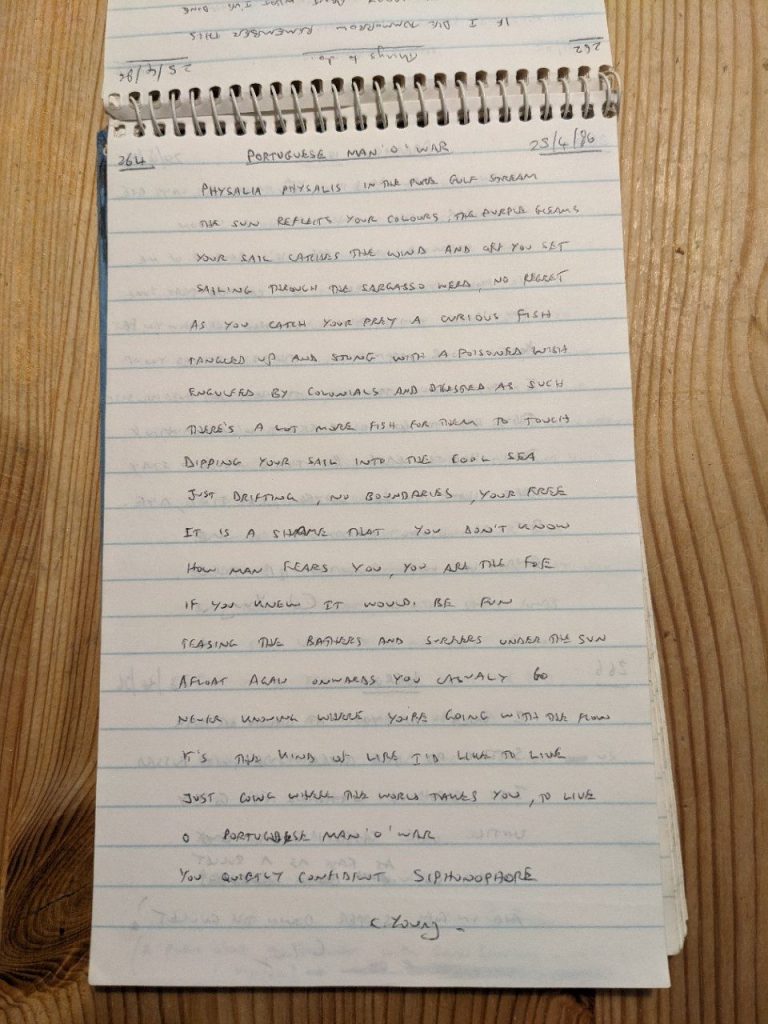 IF I DIE TOMORROW REMEMBER THIS
262 Things to do. 25/4/96
264 PORTUGUESE MAN 'O' WAR 25/4/96
PHYSALIA PHYSALIS IN THE PURE GULF STREAM
THE SUN REFLECTS YOUR COLOURS, THE PURPLE GLEAMS
YOUR SAIL CATCHES THE WIND AND OFF YOU SET
SAILING THROUGH THE SARGASSO WEED, NO REGRET
AS YOU CATCH YOUR PREY A CURIOUS FISH
TANGLED UP AND STUNG WITH A POISONED WISH
ENGULFED BY COLONIALS AND DIGESTED AS SUCH
THERE'S A LOT MORE FISH FOR THEM TO TOUCH
DIPPING YOUR SAIL INTO THE COOL SEA
JUST DRIFTING, NO BOUNDARIES, YOUR FREE
IT IS A SHAME THAT YOU DON'T KNOW
HOW MAN FEARS YOU, YOU ARE THE FOE
IF YOU KNEW IT WOULD BE FUN
TEASING THE BATHERS AND SURFERS UNDER THE SUN
AFLOAT AGAIN ONWARDS YOU CASUALY GO
NEVER KNOWING WHERE YOU'RE GOING WITH THE FLOW
IT'S THE KIND OF LIFE I'D LIKE TO LIVE
JUST GOING WHERE THE WORLD TAKES YOU, TO LIVE
O PORTUGUESE MAN 'O' WAR
YOU QUIETLY CONFIDENT SIPHONOPHORE
C. Young